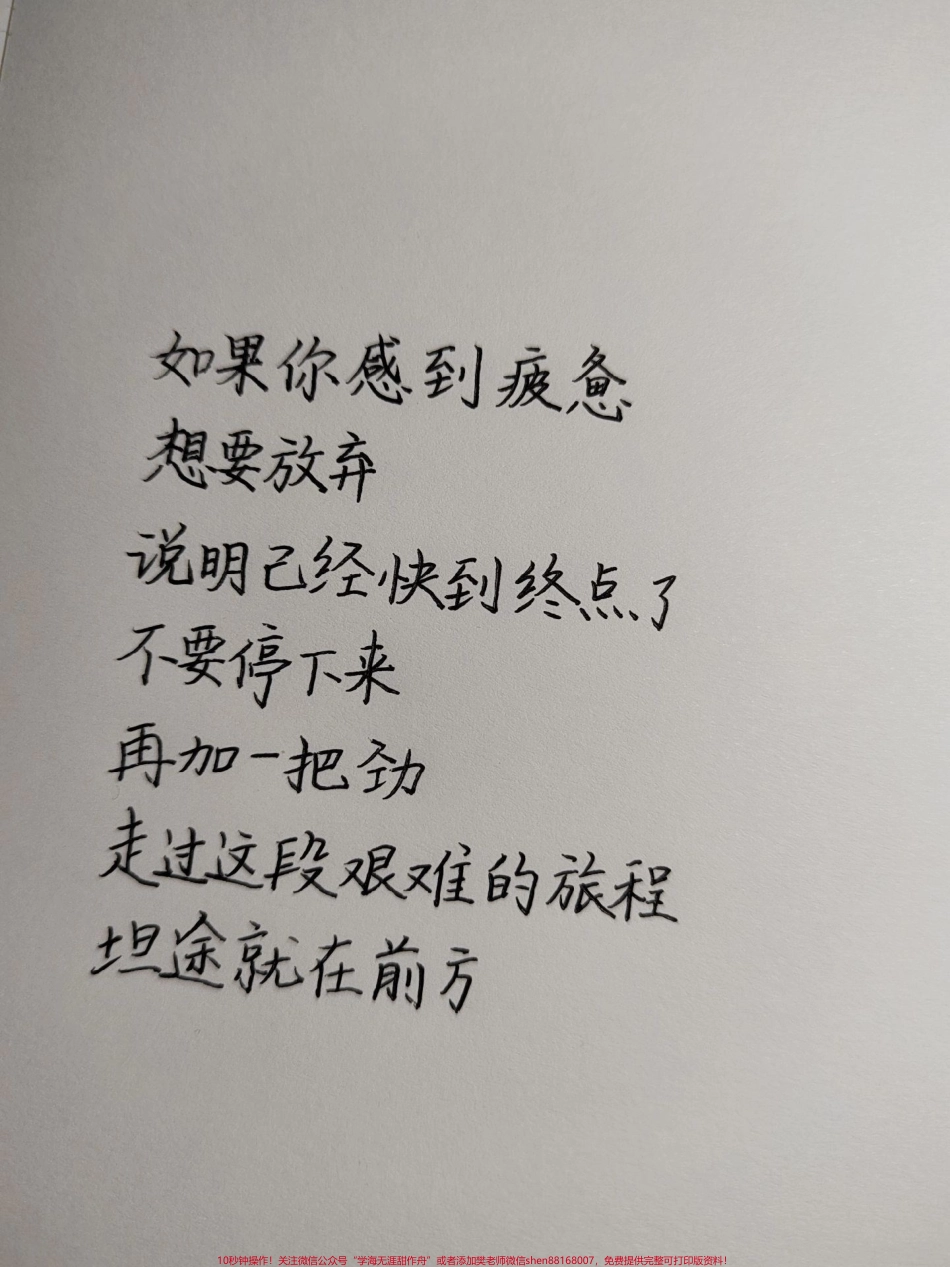 如果你感到疲惫
想要放弃
说明已经快到终点了
不要停下来
再加一把劲
走过这段艰难的旅程
坦途就在前方
10秒钟操作！关注微信公众号“学海无涯甜作舟”或者添加樊老师微信shen88168007，免费提供完整可打印版资料！